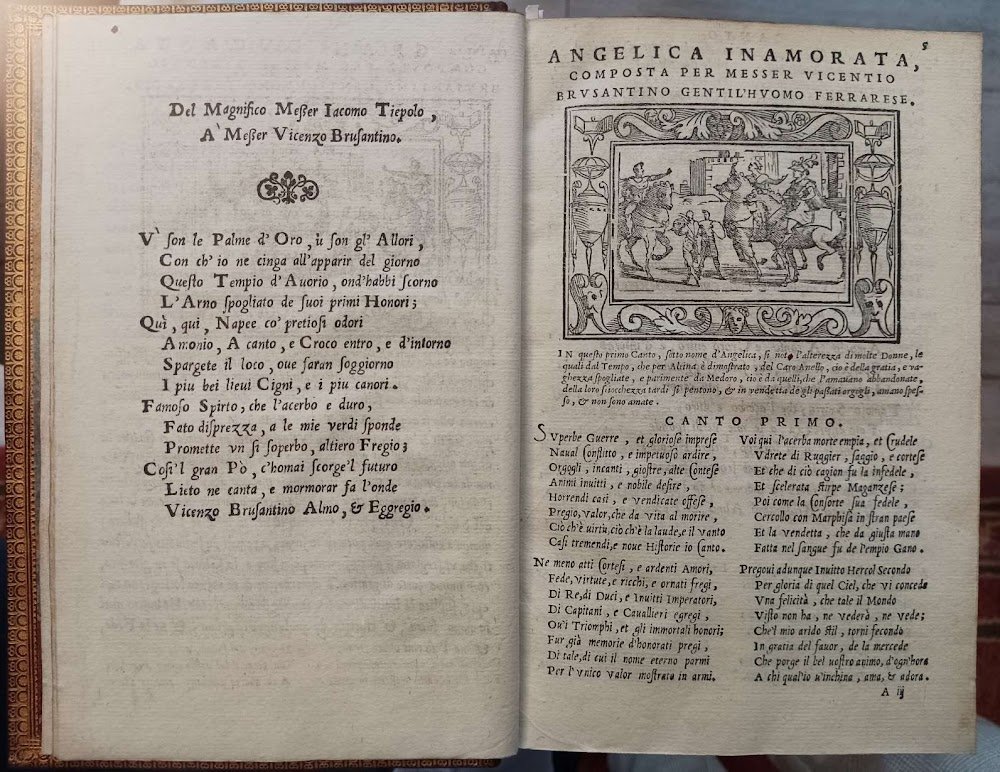 Del Magnifico Meſſer Iacomo Tiepolo,
A' Meſſer Vicenzo Bruſantino.
V' ſon le Palme d'Oro, ù ſon gl' Allori,
Con ch' io ne cinga all'apparir del giorno
Queſto Tempio d'Auorio, ond'habbi ſcorno
L'Arno ſpogliato de ſuoi primi Honori;
Quì, qui, Napee co' pretioſi odori
Amonio, A canto, e Croco entro, e d'intorno
Spargete il loco, oue faran ſoggiorno
I piu bei lieui Cigni, e i piu canori.
Famoſo Spirto, che l'acerbo e duro,
Fato diſprezza, a le mie verdi ſponde
Promette vn ſi ſoperbo, altiero Fregio;
Coſi'l gran Pò, c'homai ſcorge'l futuro
Lieto ne canta, e mormorar fa l'onde
Vicenzo Bruſantino Almo, & Eggregio.
5
ANGELICA INAMORATA,
COMPOSTA PER MESSER VICENTIO
BRVSANTINO GENTIL'HVOMO FERRARESE.
IN queſto primo Canto, ſotto nome d'Angelica, ſi nota l'alterezza di molte Donne, le
quali dal Tempo, che per Alcina è dimoſtrato, del Caro Anello, cioè della gratia, e va-
ghezza ſpogliate, e parimente da Medoro, cio è da quelli, che l'amauano abbandonate,
della loro ſciocchezza tardi ſi pentono, & in vendetta de gli paſſati orgogli, amano ſpeſ-
ſo, & non ſono amate.
CANTO PRIMO.
SVperbe Guerre, et glorioſe impreſe
Naual Conflitto, e impetuoſo ardire,
Orgogli, incanti, gioſtre, alte Conteſe
Animi inuitti, e nobile deſire,
Horrendi caſi, e vendicate offeſe,
Pregio, valor, che da vita al morire,
Ciò ch'è uirtù, ciò ch'è laude, e il vanto
Caſi tremendi, e noue Hiſtorie io Canto.
Ne meno atti Corteſi, e ardenti Amori,
Fede, virtute, e ricchi, e ornati fregi,
Di Re, di Duci, e Inuitti Imperatori,
Di Capitani, e Cauallieri egregi,
Ou'i Triomphi, et gli immortali honori;
Fur già memorie d'honorati pregi,
Di tale, di cui il nome eterno parmi
Per l'vnico valor moſtrato in armi.
Voi qui l'acerba morte empia, et Crudele
Vdrete di Ruggier, ſaggio, e corteſe
Et che di ciò cagion fu la infedele,
Et ſcelerata ſtirpe Maganzeſe;
Poi come la Conſorte ſua fedele,
Cercollo con Marphiſa in ſtran paeſe
Et la vendetta, che da giuſta mano
Fatta nel ſangue fu de l'empio Gano.
Pregoui adunque Inuitto Hercol Secondo
Per gloria di quel Ciel, che vi concede
Vna felicità, che tale il Mondo
Viſto non ha, ne vederà, ne vede;
Che'l mio arido ſtil, torni fecondo
In gratia del fauor, de la mercede
Che porge il bel uoſtro animo, d'ogn'hora
A chi qual'io u'inchina, ama, & adora.
A iij